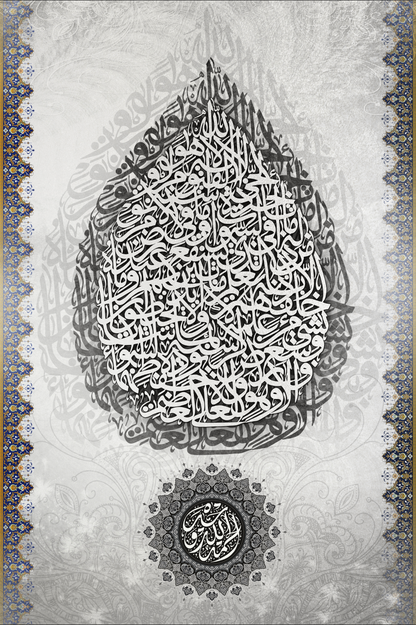 الله لا إله إلا هو الحي القيوم
لا تأخذه سنة ولا نوم
له ما في السموات وما في الأرض
من ذا الذي يشفع عنده إلا بإذنه
يعلم ما بين أيديهم وما خلفهم
ولا يحيطون بشيء من علمه إلا بما شاء
وسع كرسيه السموات والأرض
ولا يؤده حفظهما
وهو العلي العظيم